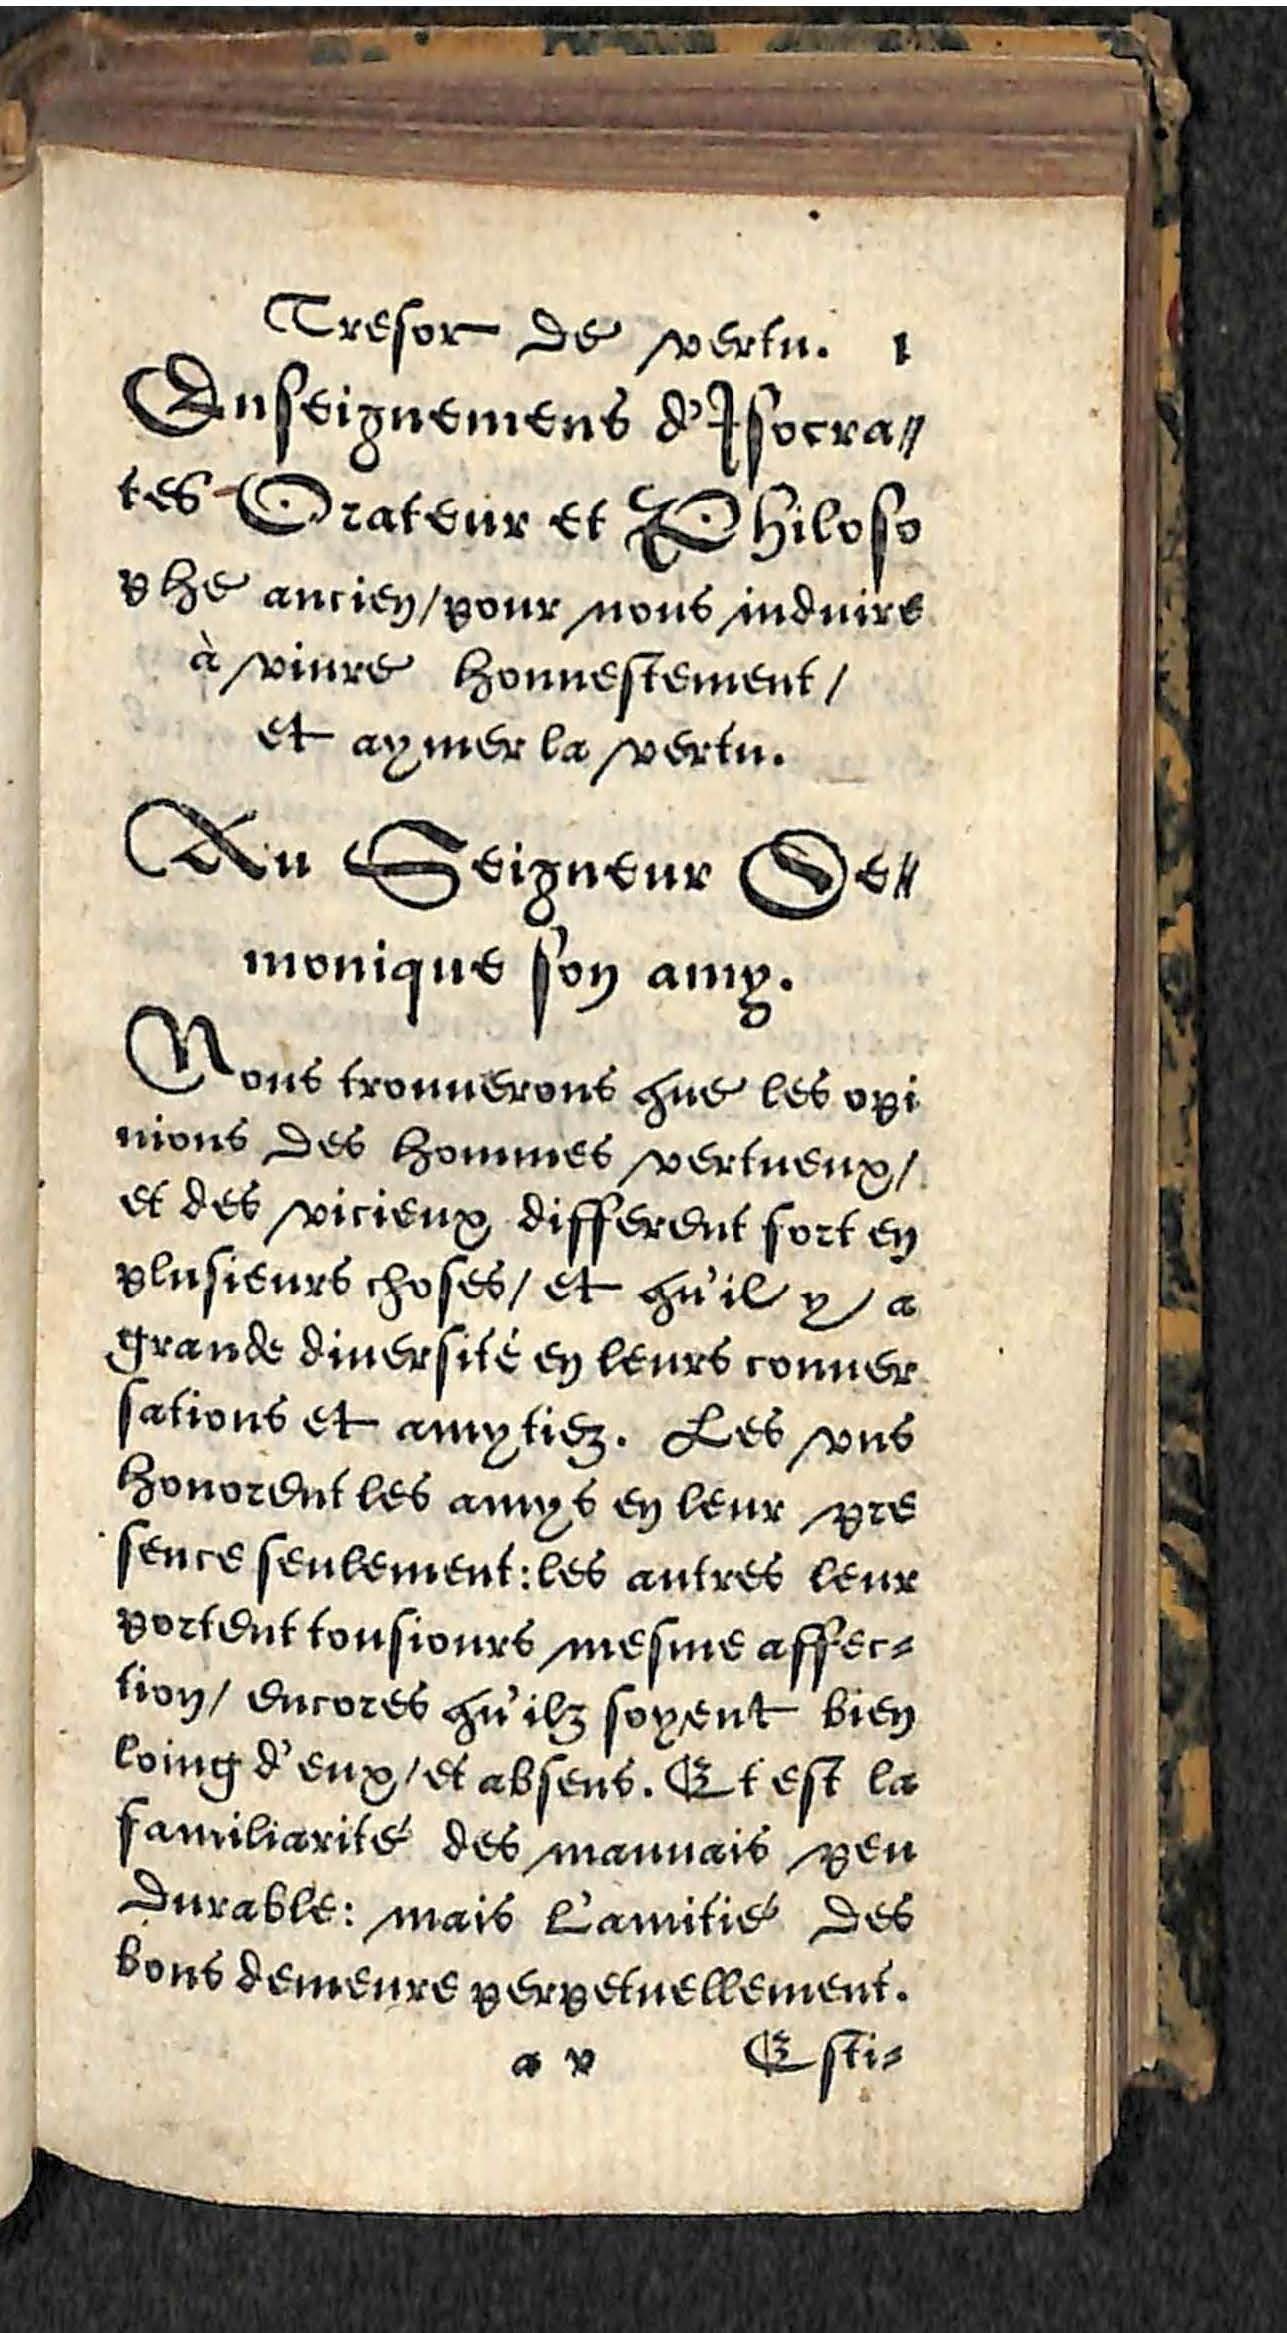 Tresor de vertu. 1
Enseignemens d'Isocra//
tes Orateur et Philoso
phe ancien/pour nous induire
à viure honnestement/
et aymer la vertu.
Au Seigneur De//
monique son amy.
Nous trouuerons que les opi
nions des hommes vertueux/
et des vicieux different fort en
plusieurs choses/ et qu'il y a
grande diuersité en leurs conuer
sations et amytiez. Les vns
honorent les amys en leur pre
sence seulement: les autres leur
portent tousiours mesme affec-
tion/ encores qu'ilz soyent bien
loing d'eux/et absens. Et est la
familiarité des mauuais peu
durable: mais l'amitié des
bons demeure perpetuellement.
a v Esti-